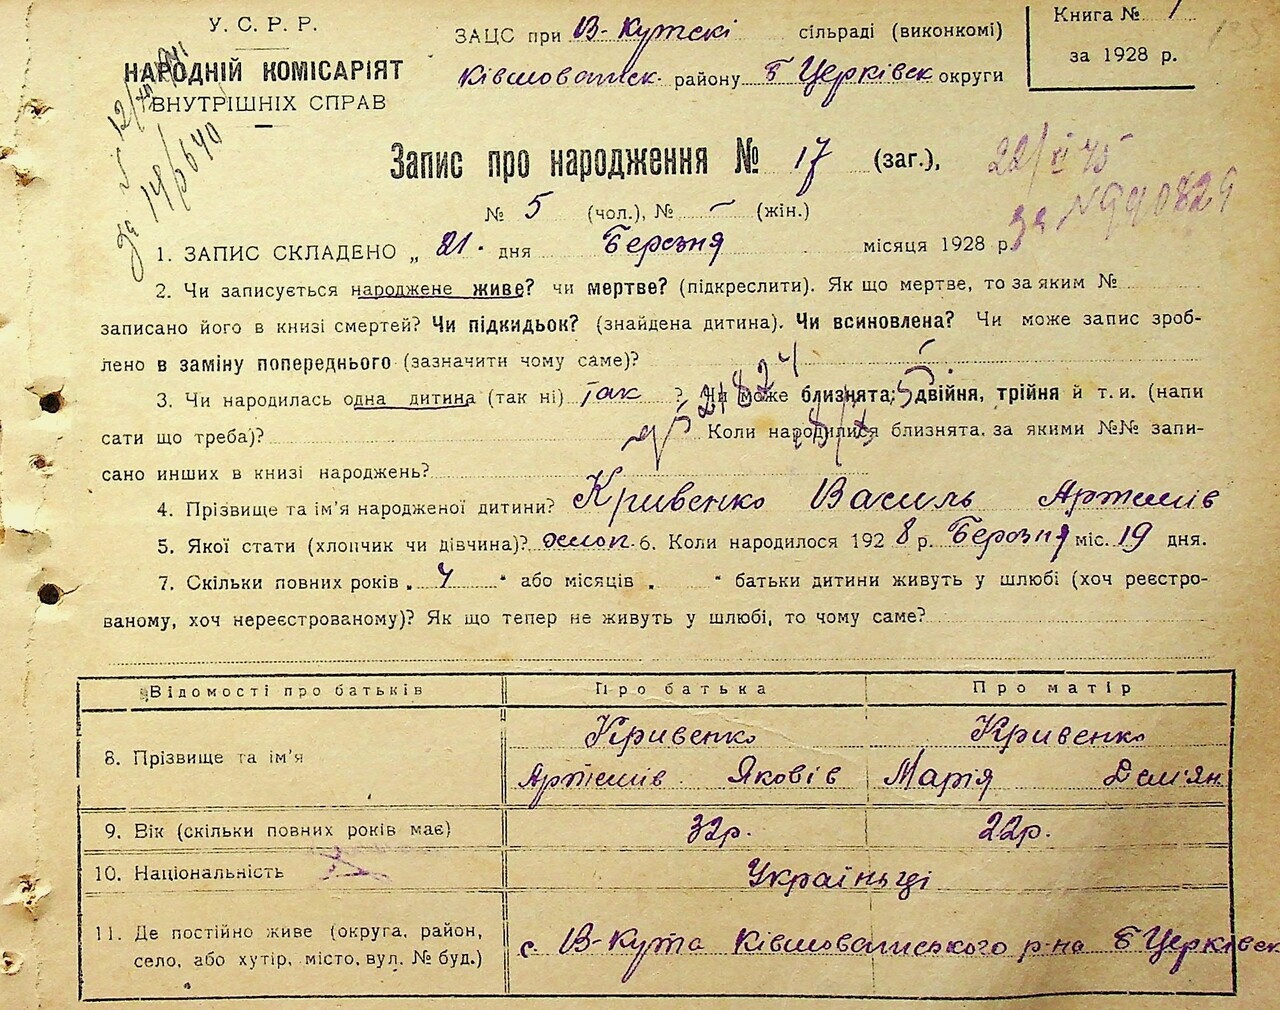 У. С. Р. Р.
НАРОДНІЙ КОМІСАРІЯТ
ВНУТРІШНІХ СПРАВ
ЗАЦС при В-Кутскі сільраді (виконкомі)
Ківшоватск. району Б Церківск округи
Книга № 1
за 1928 р.
За № 12/
14/5640
Запис про народження № 17 (заг.),
22/XI 45
За № 990829
№ 5 (чол.), № – (жін.)
1. ЗАПИС СКЛАДЕНО „ 21. дня Березня місяця 1928 р.
2. Чи записується народжене живе? чи мертве? (підкреслити). Як що мертве, то за яким №
записано його в книзі смертей? Чи підкидьок? (знайдена дитина). Чи всиновлена? Чи може запис зроб-
лено в заміну попереднього (зазначити чому саме)? –
3. Чи народилась одна дитина (так ні) Так ? Чи може близнята: двійня, трійня й т. и. (напи
сати що треба)? Коли народилися близнята. за якими №№ запи-
сано инших в книзі народжень?
4. Прізвище та ім'я народженої дитини? Кривенко Василь Артемів
5. Якої стати (хлопчик чи дівчина)? хлоп. 6. Коли народилося 192 8 р. Березня міс. 19 дня.
7. Скільки повних років „ 4 “ або місяців „ “ батьки дитини живуть у шлюбі (хоч реєстро-
ваному, хоч нереєстрованому)? Як що тепер не живуть у шлюбі, то чому саме?
Відомості про батьків Про батька Про матір
8. Прізвище та ім'я Кривенко Кривенко
Артемів Яковів Марія Дем'ян.
9. Вік (скільки повних років має) 32р. 22р.
10. Національність Українці
11. Де постійно живе (округа, район,
село, або хутір, місто, вул. № буд.) с. В-Кута Ківшоватського р-на Б Церківск